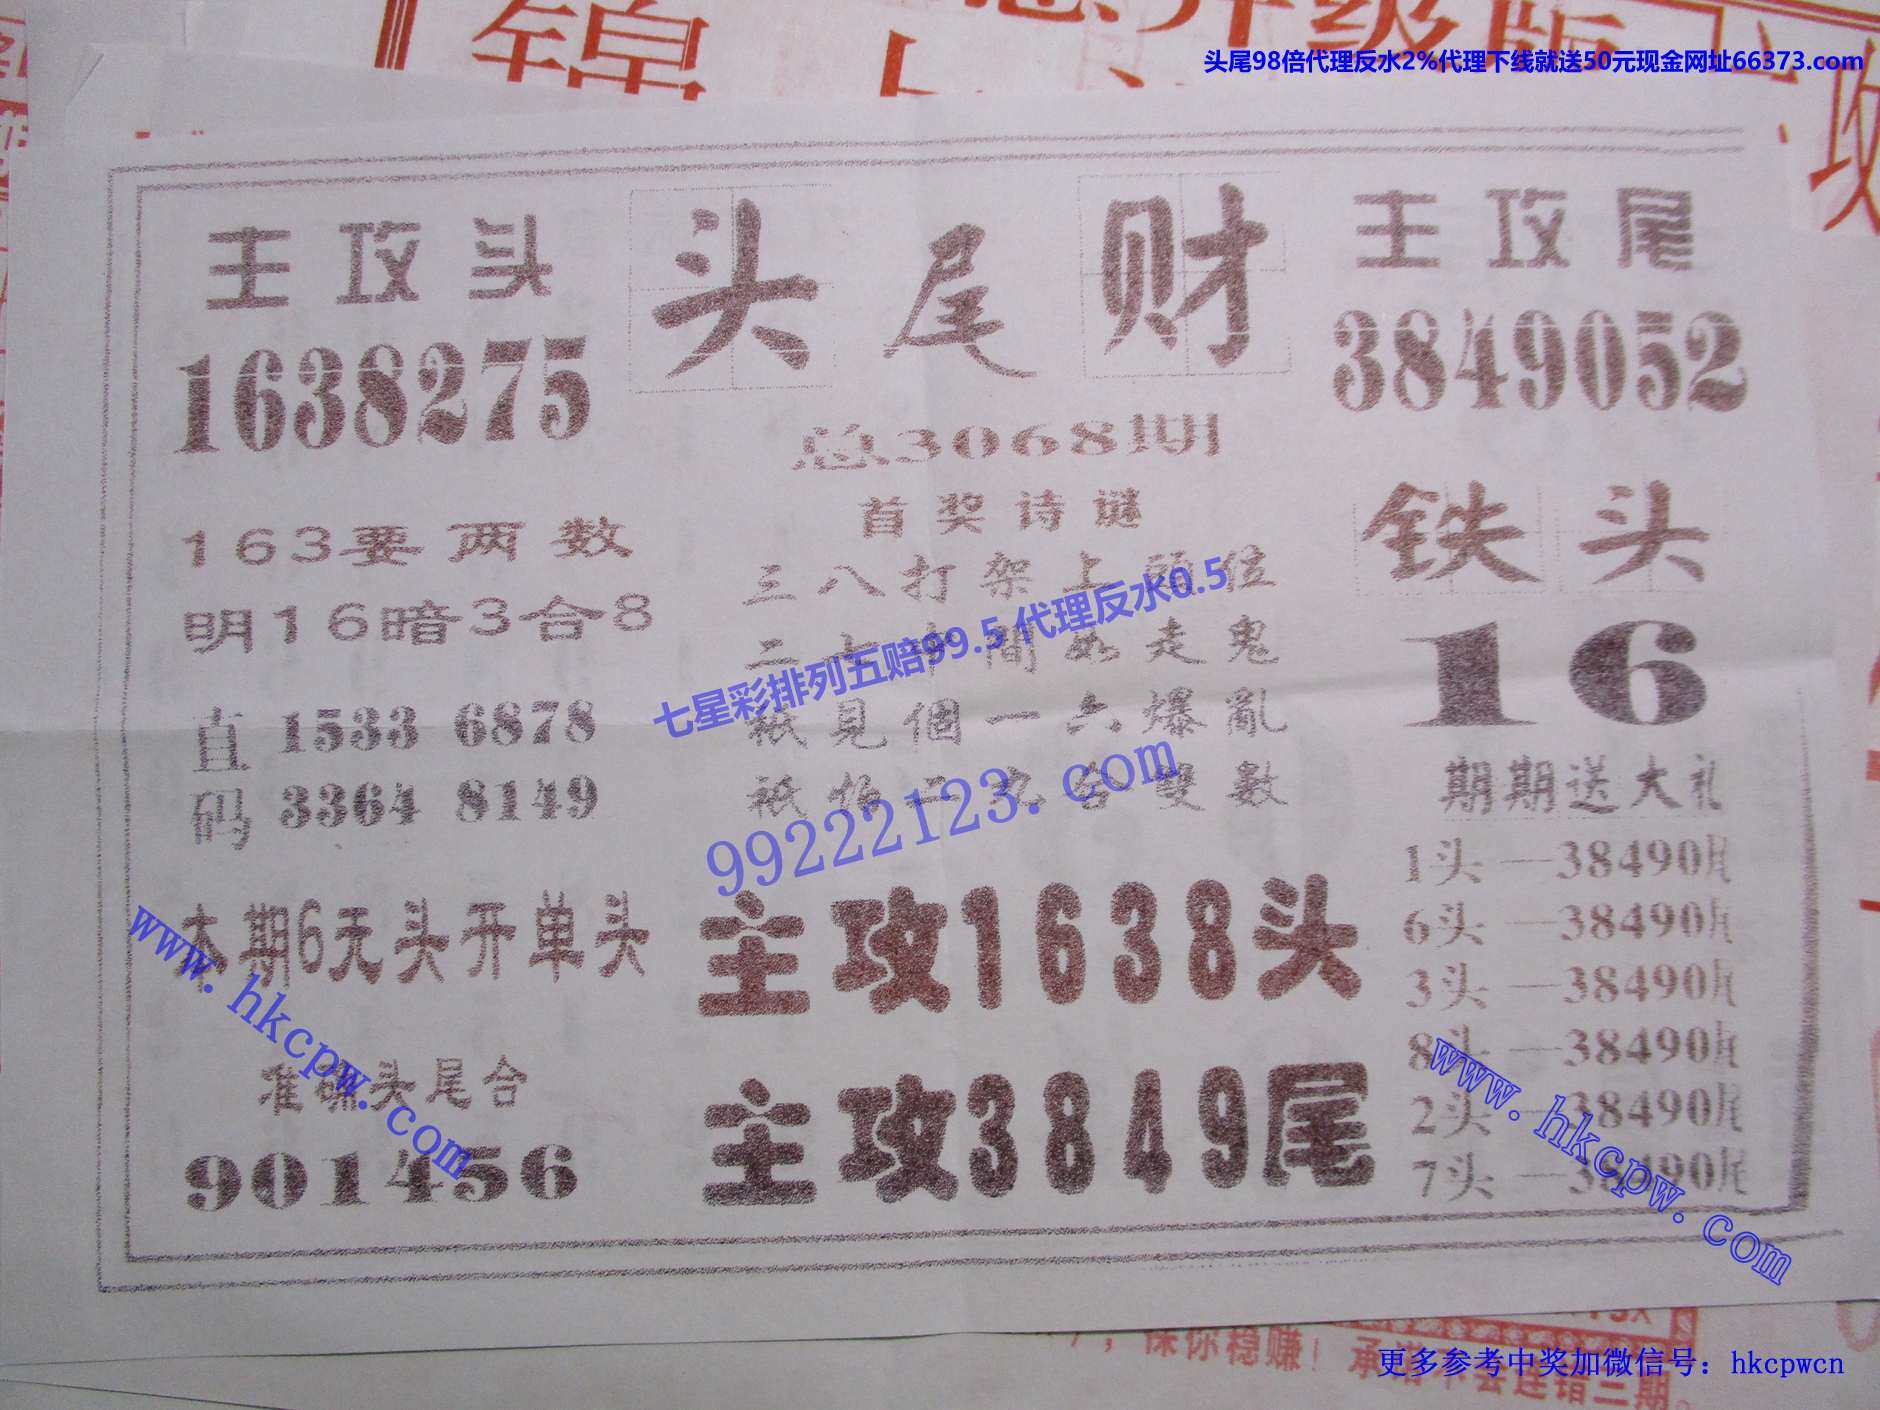 锦上
升级版
攻
头尾98倍代理反水2%代理下线就送50元现金网址66373.com
主攻头
1638275
头尾财
主攻尾
3849052
总3068期
首奖诗谜
三八打架上頭位
二七中間如走鬼
祇見個一六爆亂
祇 二九合雙數
163要两数
明16暗3合8
直码
1533 6878
3364 8149
七星彩排列五赔99.5代理反水0.5
99222123.com
铁头
16
期期送大礼
1头—38490尾
6头—38490尾
3头—38490尾
8头—38490尾
2头—38490尾
7头—38490尾
本期6无头开单头
准确头尾合
901456
主攻1638头
主攻3849尾
www.hkcpw.com
www.hkcpw.com
，保你稳赚！承诺不会连错三期。
更多参考中奖加微信号：hkcpwcn